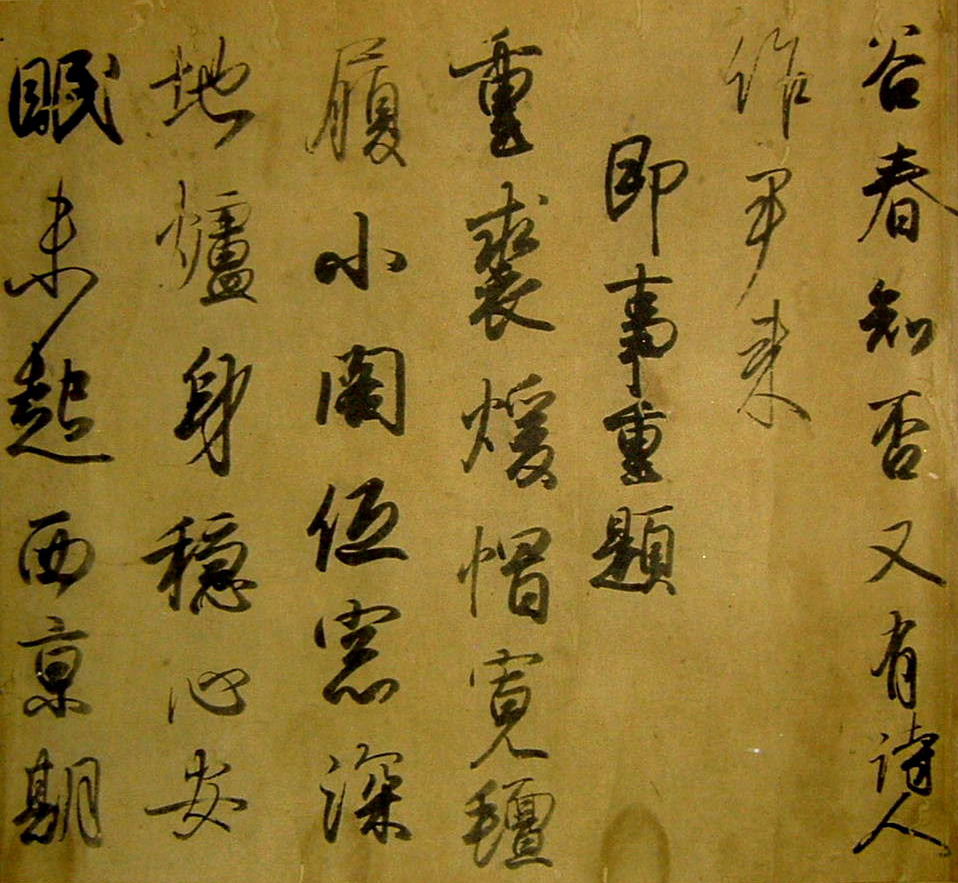 谷春知否又有詩人
作尹來
即事重題
重裘煖帽寬氊
履小閣低窓深
地爐身穩心安
眠未起西京期